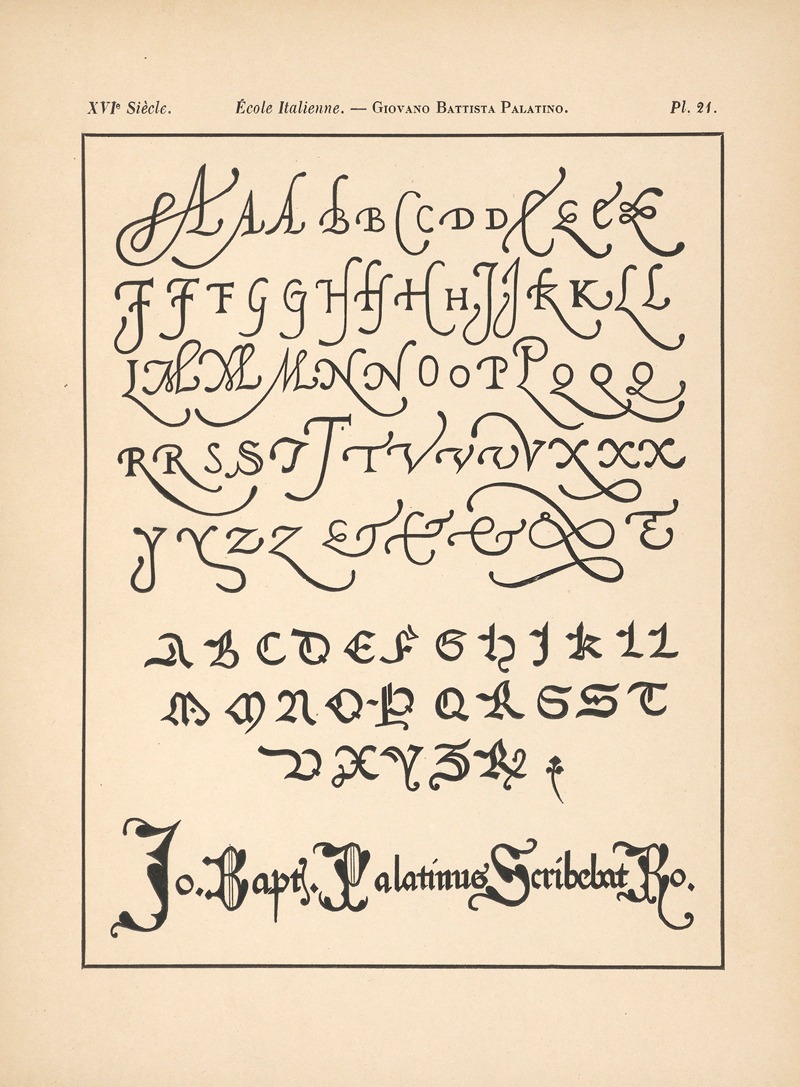 XVIᵉ Siècle. École Italienne. — Giovano Battista Palatino. Pl. 21.
A A A B B C C D D E E E E
F F F G G H H H H J J K K L L
L M M M N N O O P P Q Q Q
R R S S T T T V V V V X X X
Y Y Z Z & & & & &
A B C D E F G H J K L L
M M N O P Q R S S T
V X Y Z R
Jo. Bapt. Palatinus Scribebat Ro.